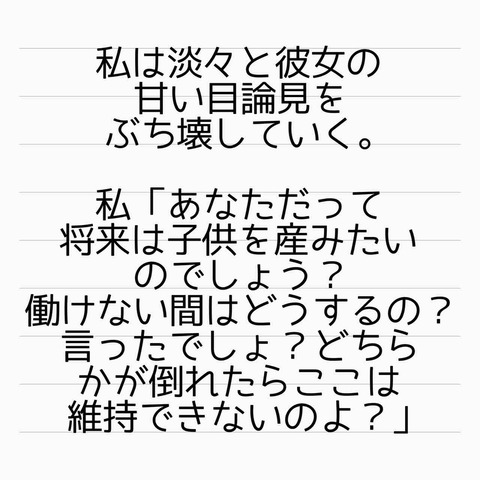 私は淡々と彼女の
甘い目論見を
ぶち壊していく。
私「あなただって
将来は子供を産みたい
のでしょう？
働けない間はどうするの？
言ったでしょ？どちら
かが倒れたらここは
維持できないのよ？」